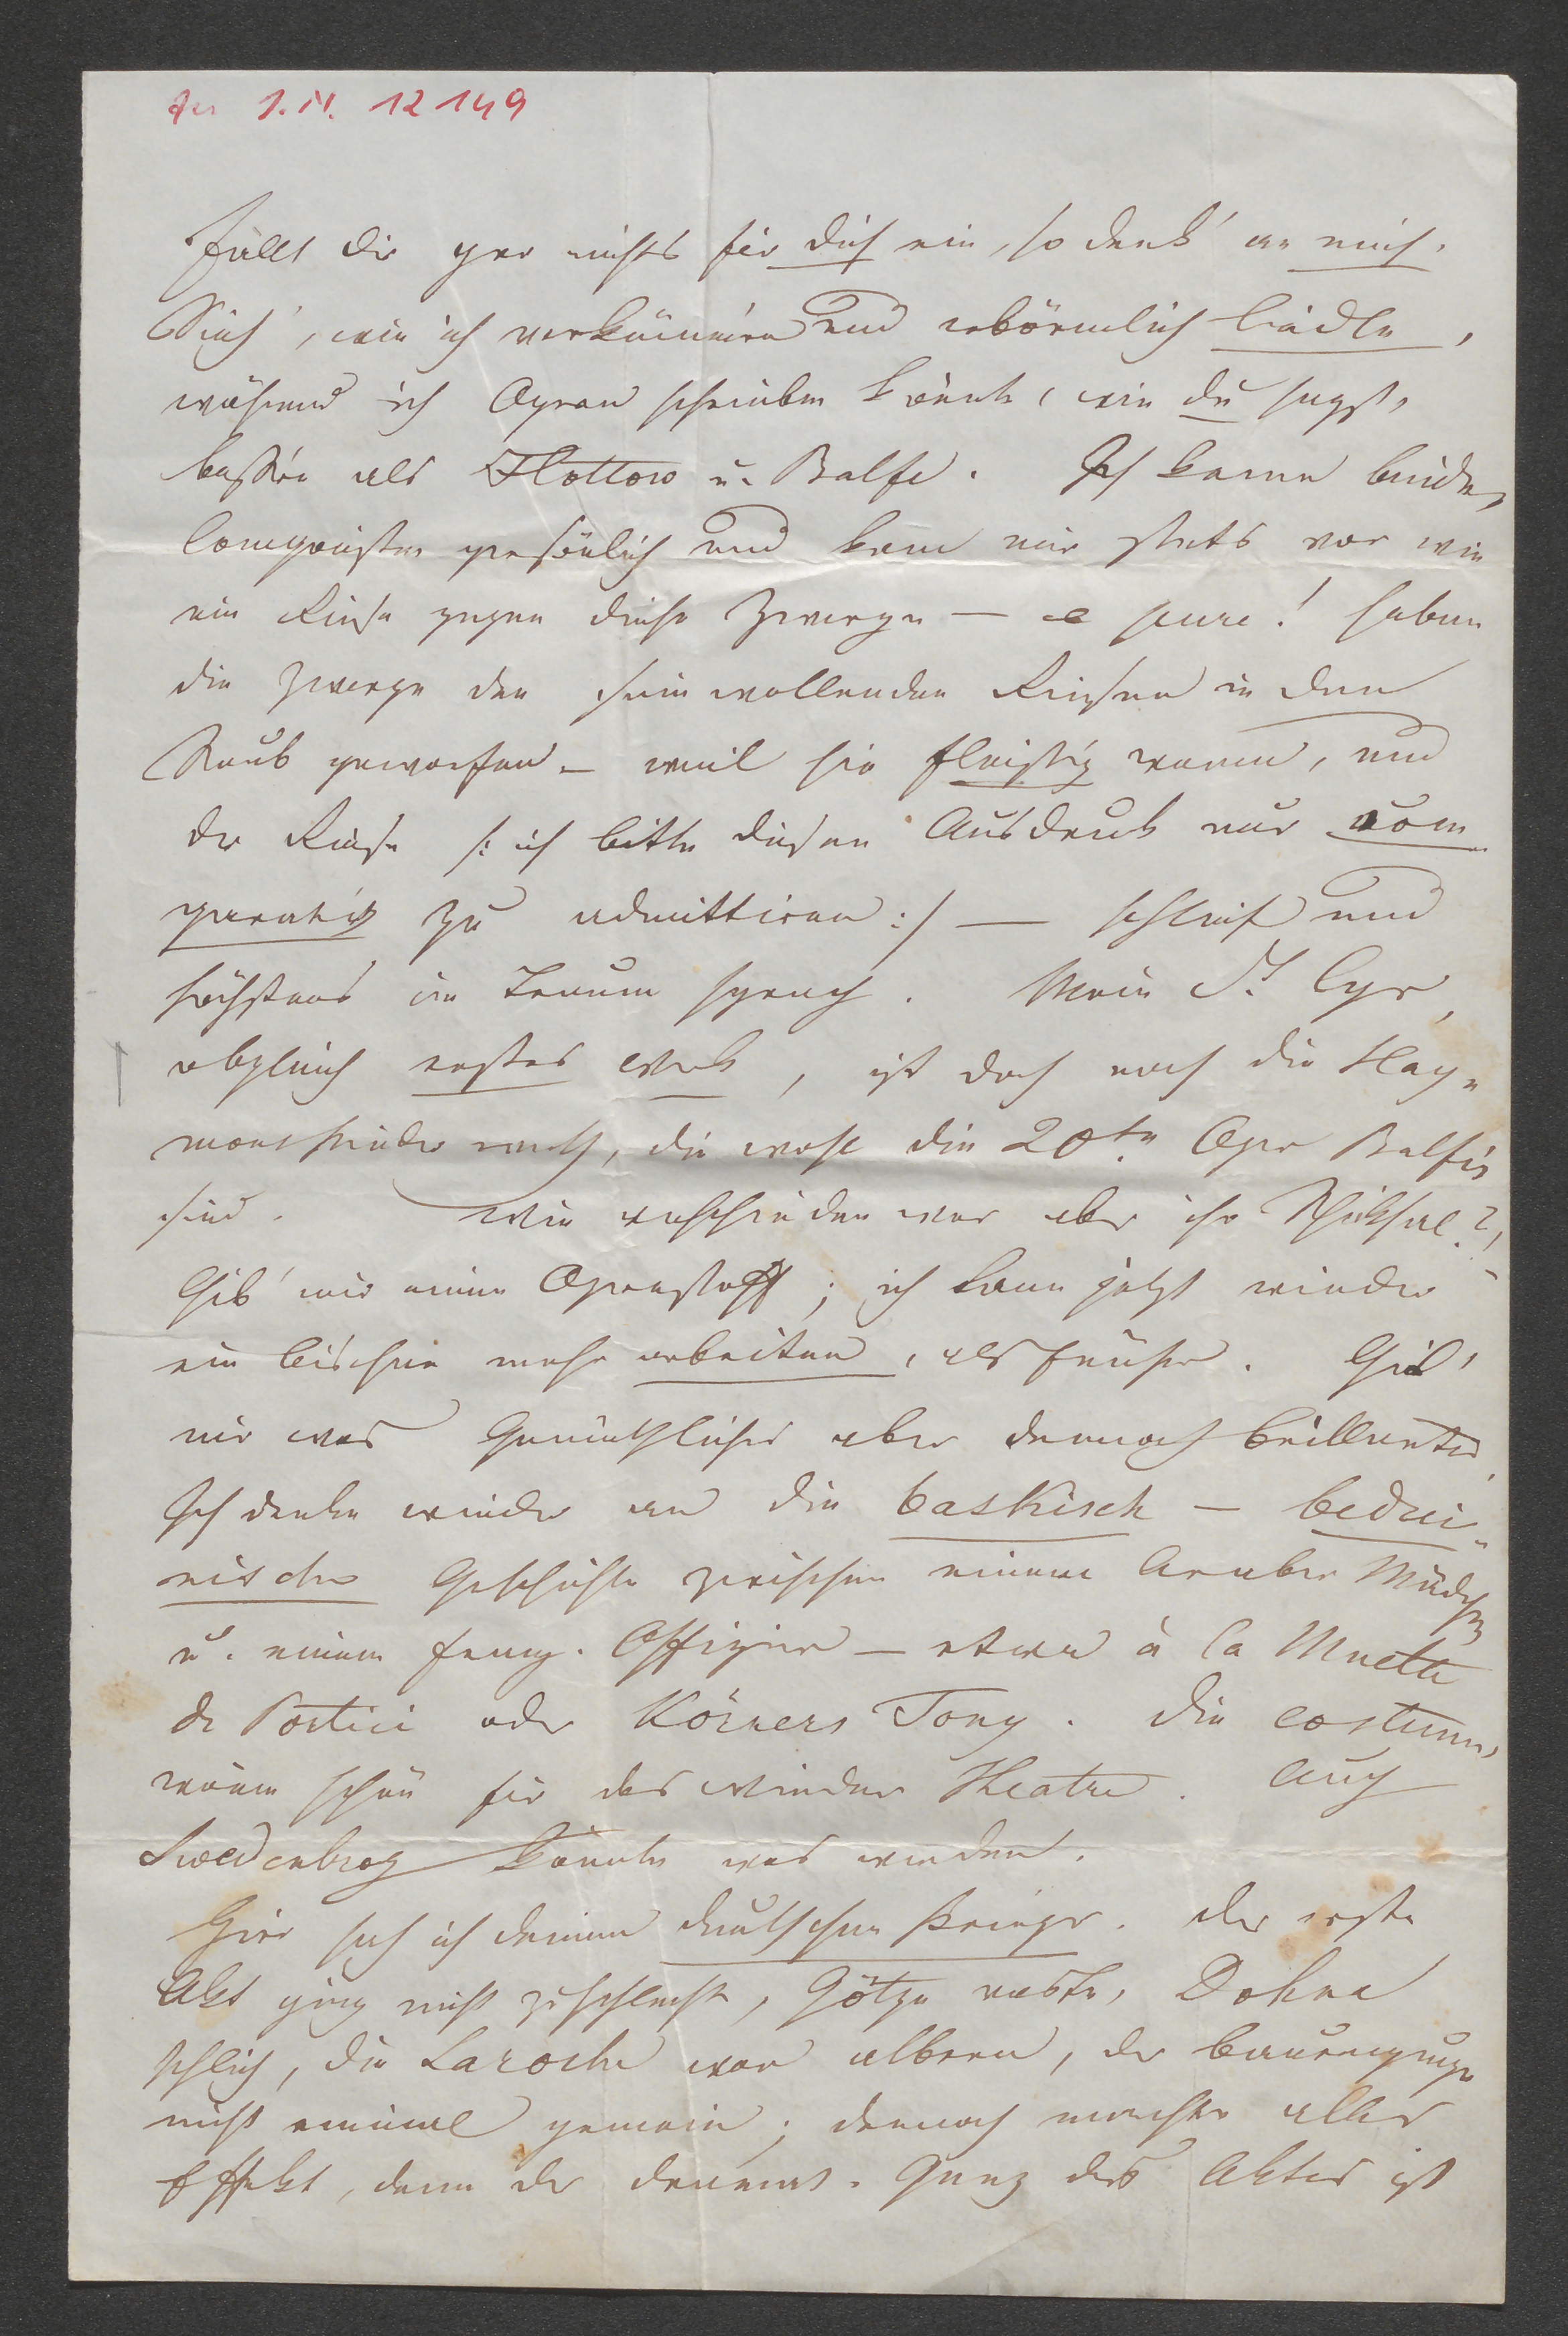 zu I.N. 12149
Fällt dir gar nichts für dich ein, so denk' an mich.
Sieh', wie ich verkümmere und erbärmlich liedle,
während ich Opern schreiben könnte, wie du sagst,
besser als Flottow u. Balfe. Ich kenne beide
Componisten persönlich und kam mir stets vor wie
ein Riese gegen diese Zwerge — e pure! haben
die Zwerge den sein wollenden Riesen in den
Staub geworfen — weil sie fleißig waren, und
der Riese /: ich bitte diesen Ausdruck nur com
parativ zu admittiren :/ — schlief und
höchstens im Traum sprach. Mein St. Cyr,
obgleich erstes Werk, ist doch noch die Hay-
monskinder werth, die wohl die 20te Oper Balfes
sind. Wie verschieden war aber ihr Schicksal?!
Gib' mir einen Opernstoff; ich kann jetzt wieder
ein bischen mehr arbeiten, als früher. Gib'
mir was Gemüthliches aber dennoch brillantes.
Ich denke wieder an die baskisch — bedui-
nische Geschichte zwischen einem Araber Mädchen
u. einem franz. Offizier — etwa à la Muette
de Portici oder Körners Tony. Die Costume
wären schön für das Wiedner Theatre. Auch
Swedenborg könnte was werden.
Hier sah ich deinen deutschen Krieger. Der erste
Akt ging nicht zu schlecht, Götze raste, Dohna
schlich, die Laroche war albern, der Bauernjunge
nicht einmal gemein; dennoch machte alles
Effekt, denn der dramat. Gang des Aktes ist